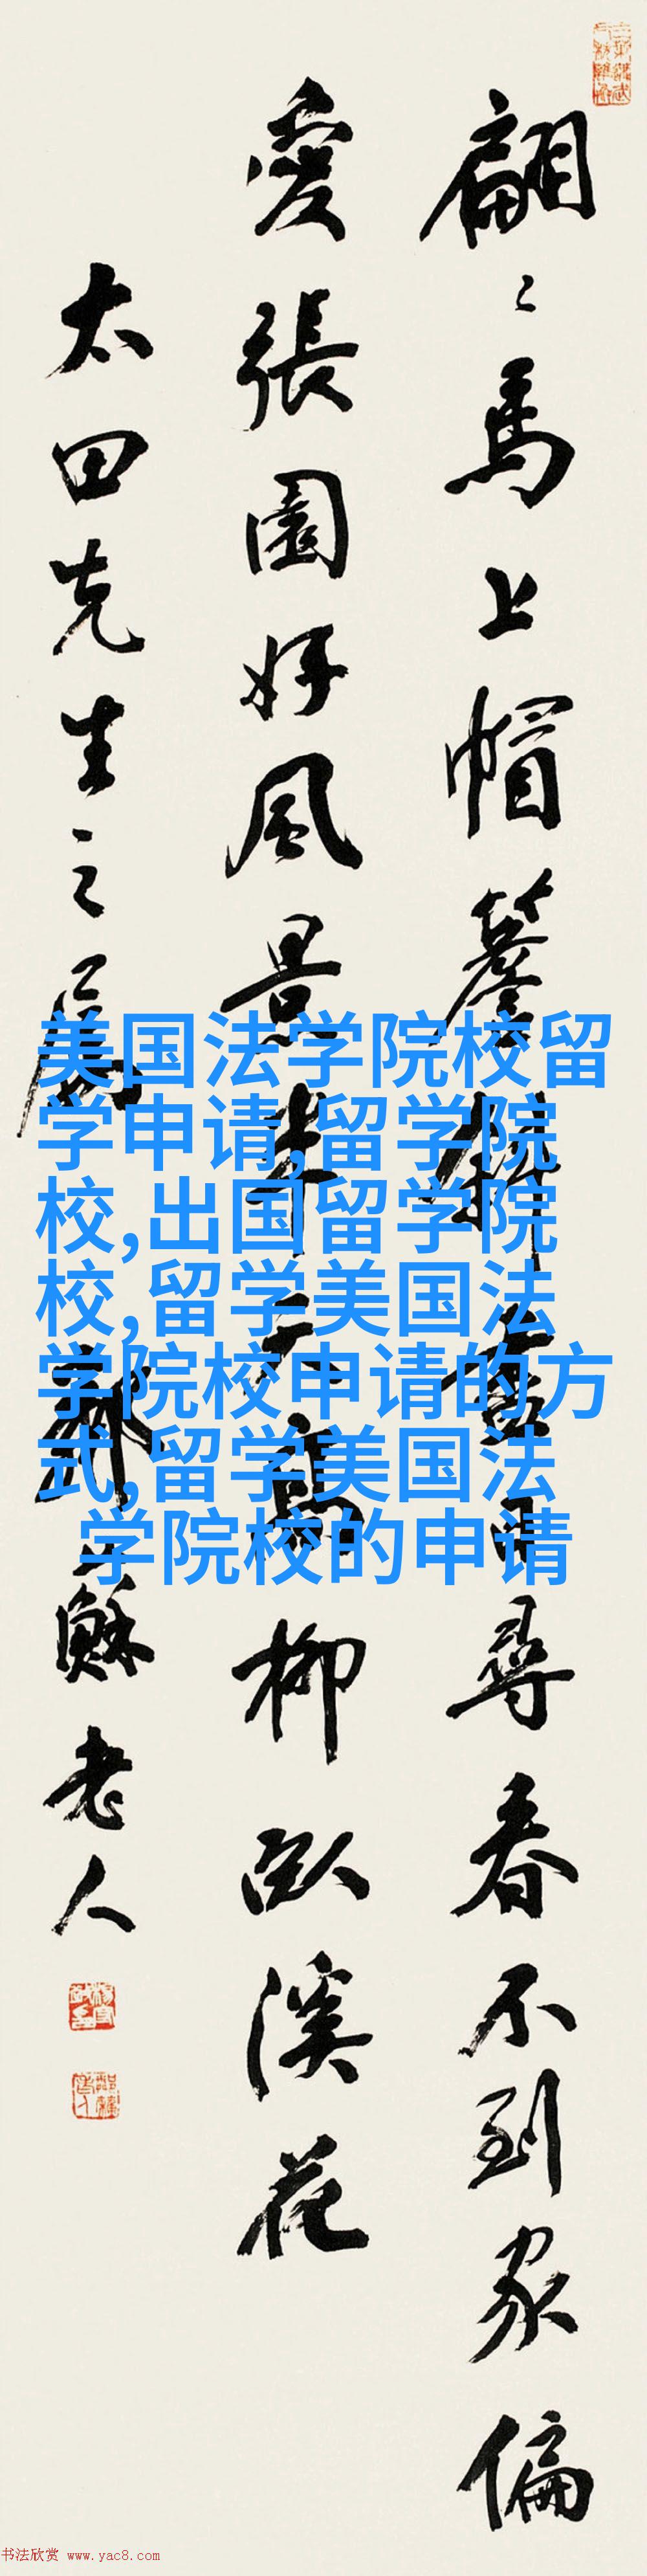 翩〻馬上帽簷斜盡日尋春不到家偏
愛張園好風景半天高柳臥溪花
太田先生之屬
穌老人
美国法学院校留
学申请,留学院
校,出国留学院
校,留学美国法
学院校申请的方
式,留学美国法
学院校的申请
书法欣赏 www.yac8.com